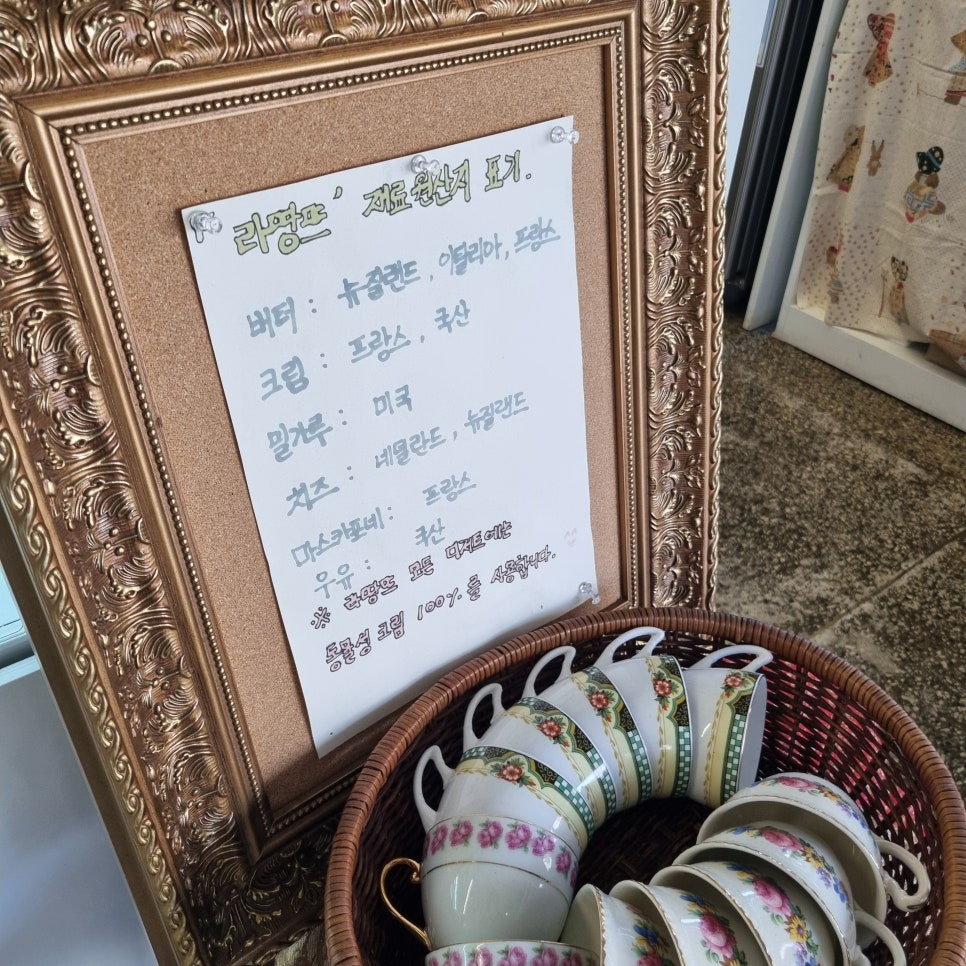 라땅뜨' 재료 원산지 표기.
버터 : 뉴질랜드, 이탈리아, 프랑스
크림 : 프랑스, 국산
밀가루 : 미국
치즈 : 네덜란드, 뉴질랜드
마스카포네 : 프랑스
우유 : 국산
※ 라땅뜨 모든 디저트에는
동물성 크림 100% 를 사용합니다.